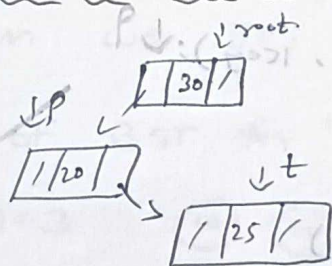 root
30
P
20
t
25